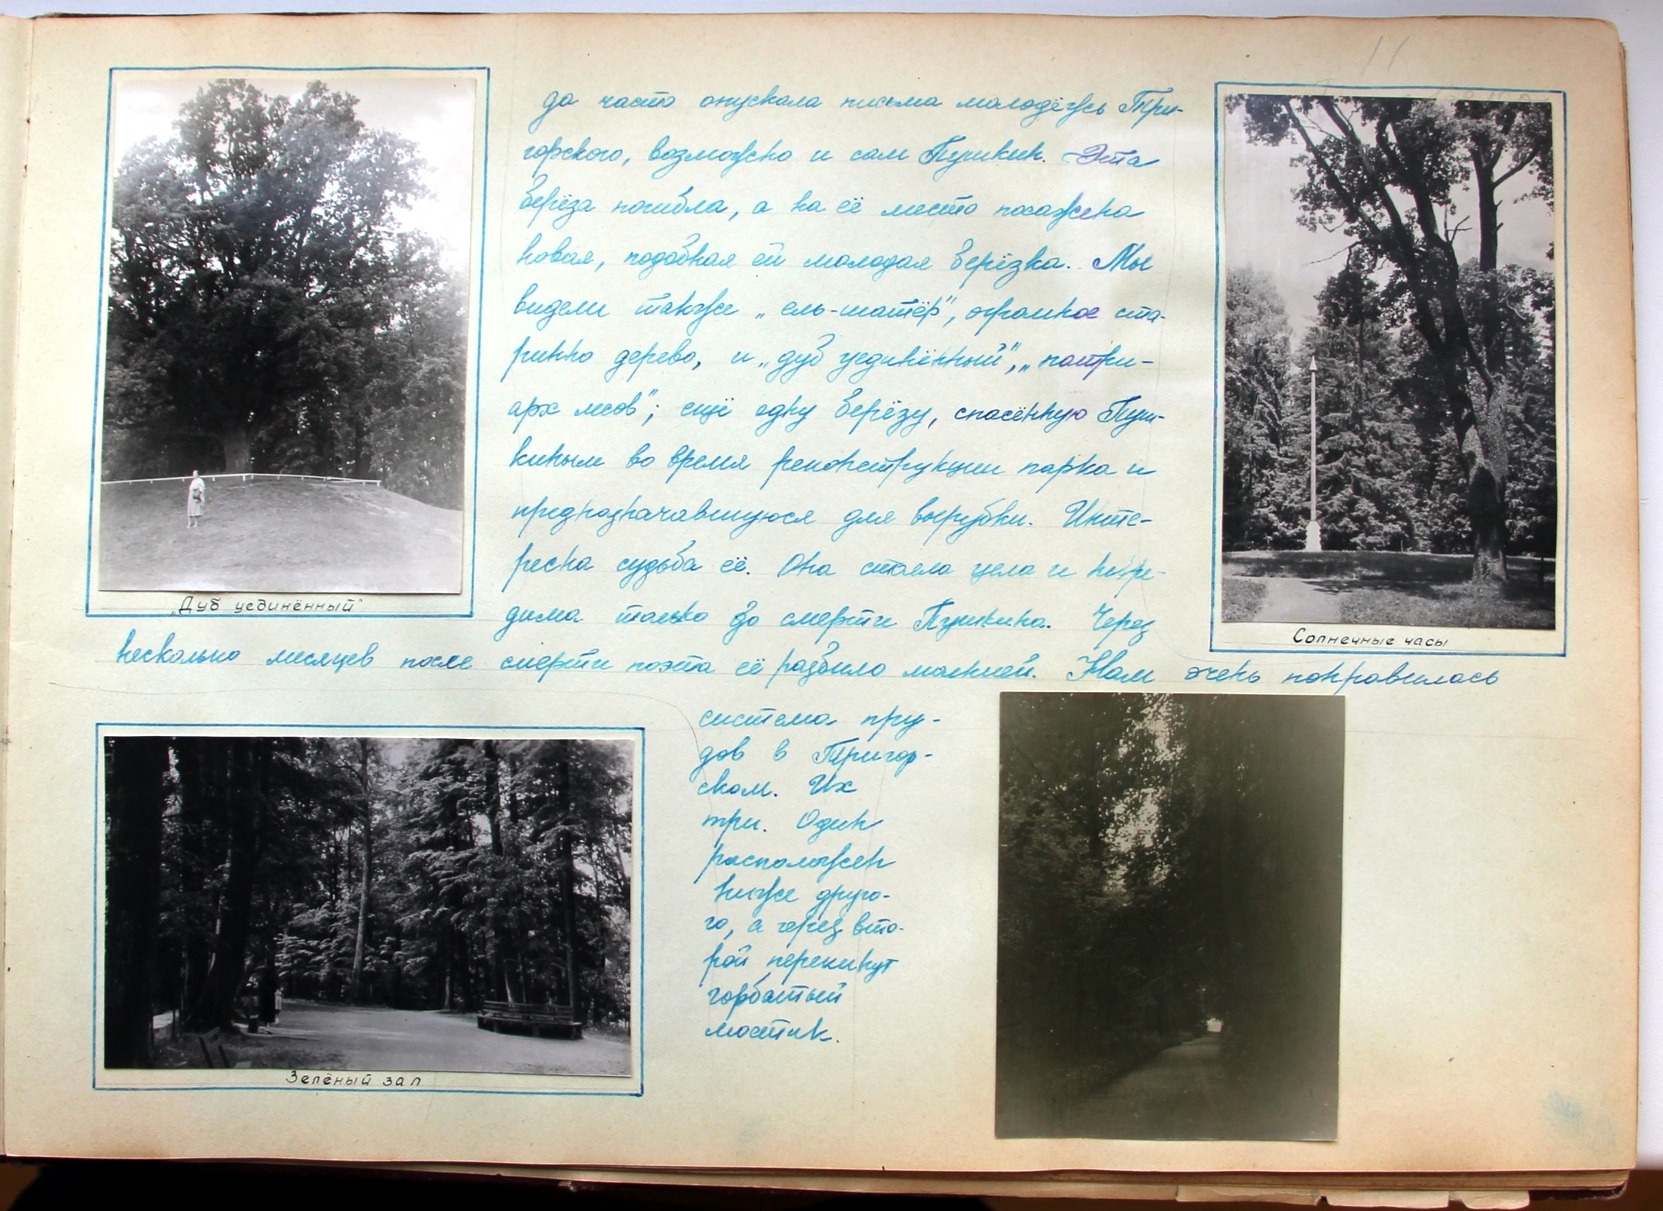 11
да часто опускала письма молодёжь Три-
горского, возможно и сам Пушкин. Эта
берёза погибла, а на её место посажена
новая, подобная ей молодая берёзка. Мы
видели также „ель-шатёр", огромное ста-
ринно дерево, и „дуб уединённый", „патри-
арх лесов"; ещё одну берёзу, спасённую Пуш-
киным во время реконструкции парка и
предназначавшуюся для вырубки. Инте-
ресна судьба её. Она стояла цела и невре-
дима только до смерти Пушкина. Через
несколько месяцев после смерти поэта её разбило молнией. Нам очень понравилась
система пру-
дов в Тригор-
ском. Их
три. Один
расположен
ниже друго-
го, а через вто-
рой перекинут
горбатый
мостик.
„Дуб уединённый"
Солнечные часы
Зелёный зал